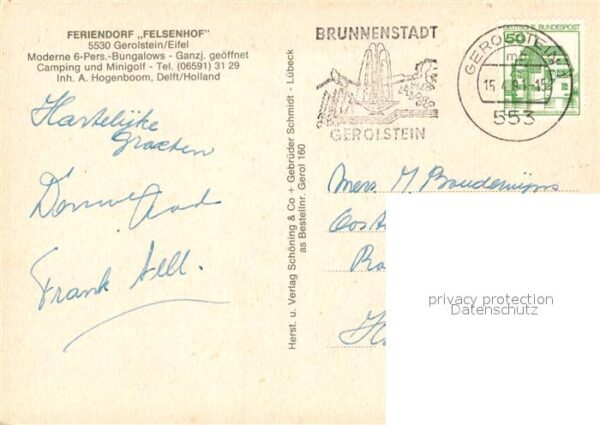 FERIENDORF „FELSENHOF"
5530 Gerolstein/Eifel
Moderne 6-Pers.-Bungalows - Ganzj. geöffnet
Camping und Minigolf - Tel. (06591) 31 29
Inh. A. Hogenboom, Delft/Holland
Hartelijke
Groeten
Frank
Herst. u. Verlag Schöning & Co + Gebrüder Schmidt - Lübeck
as Bestellnr. Gerol 160
BRUNNENSTADT
GEROLSTEIN
DEUTSCHE BUNDESPOST
50
GEROLSTEIN
553
Oost
privacy protection
Datenschutz